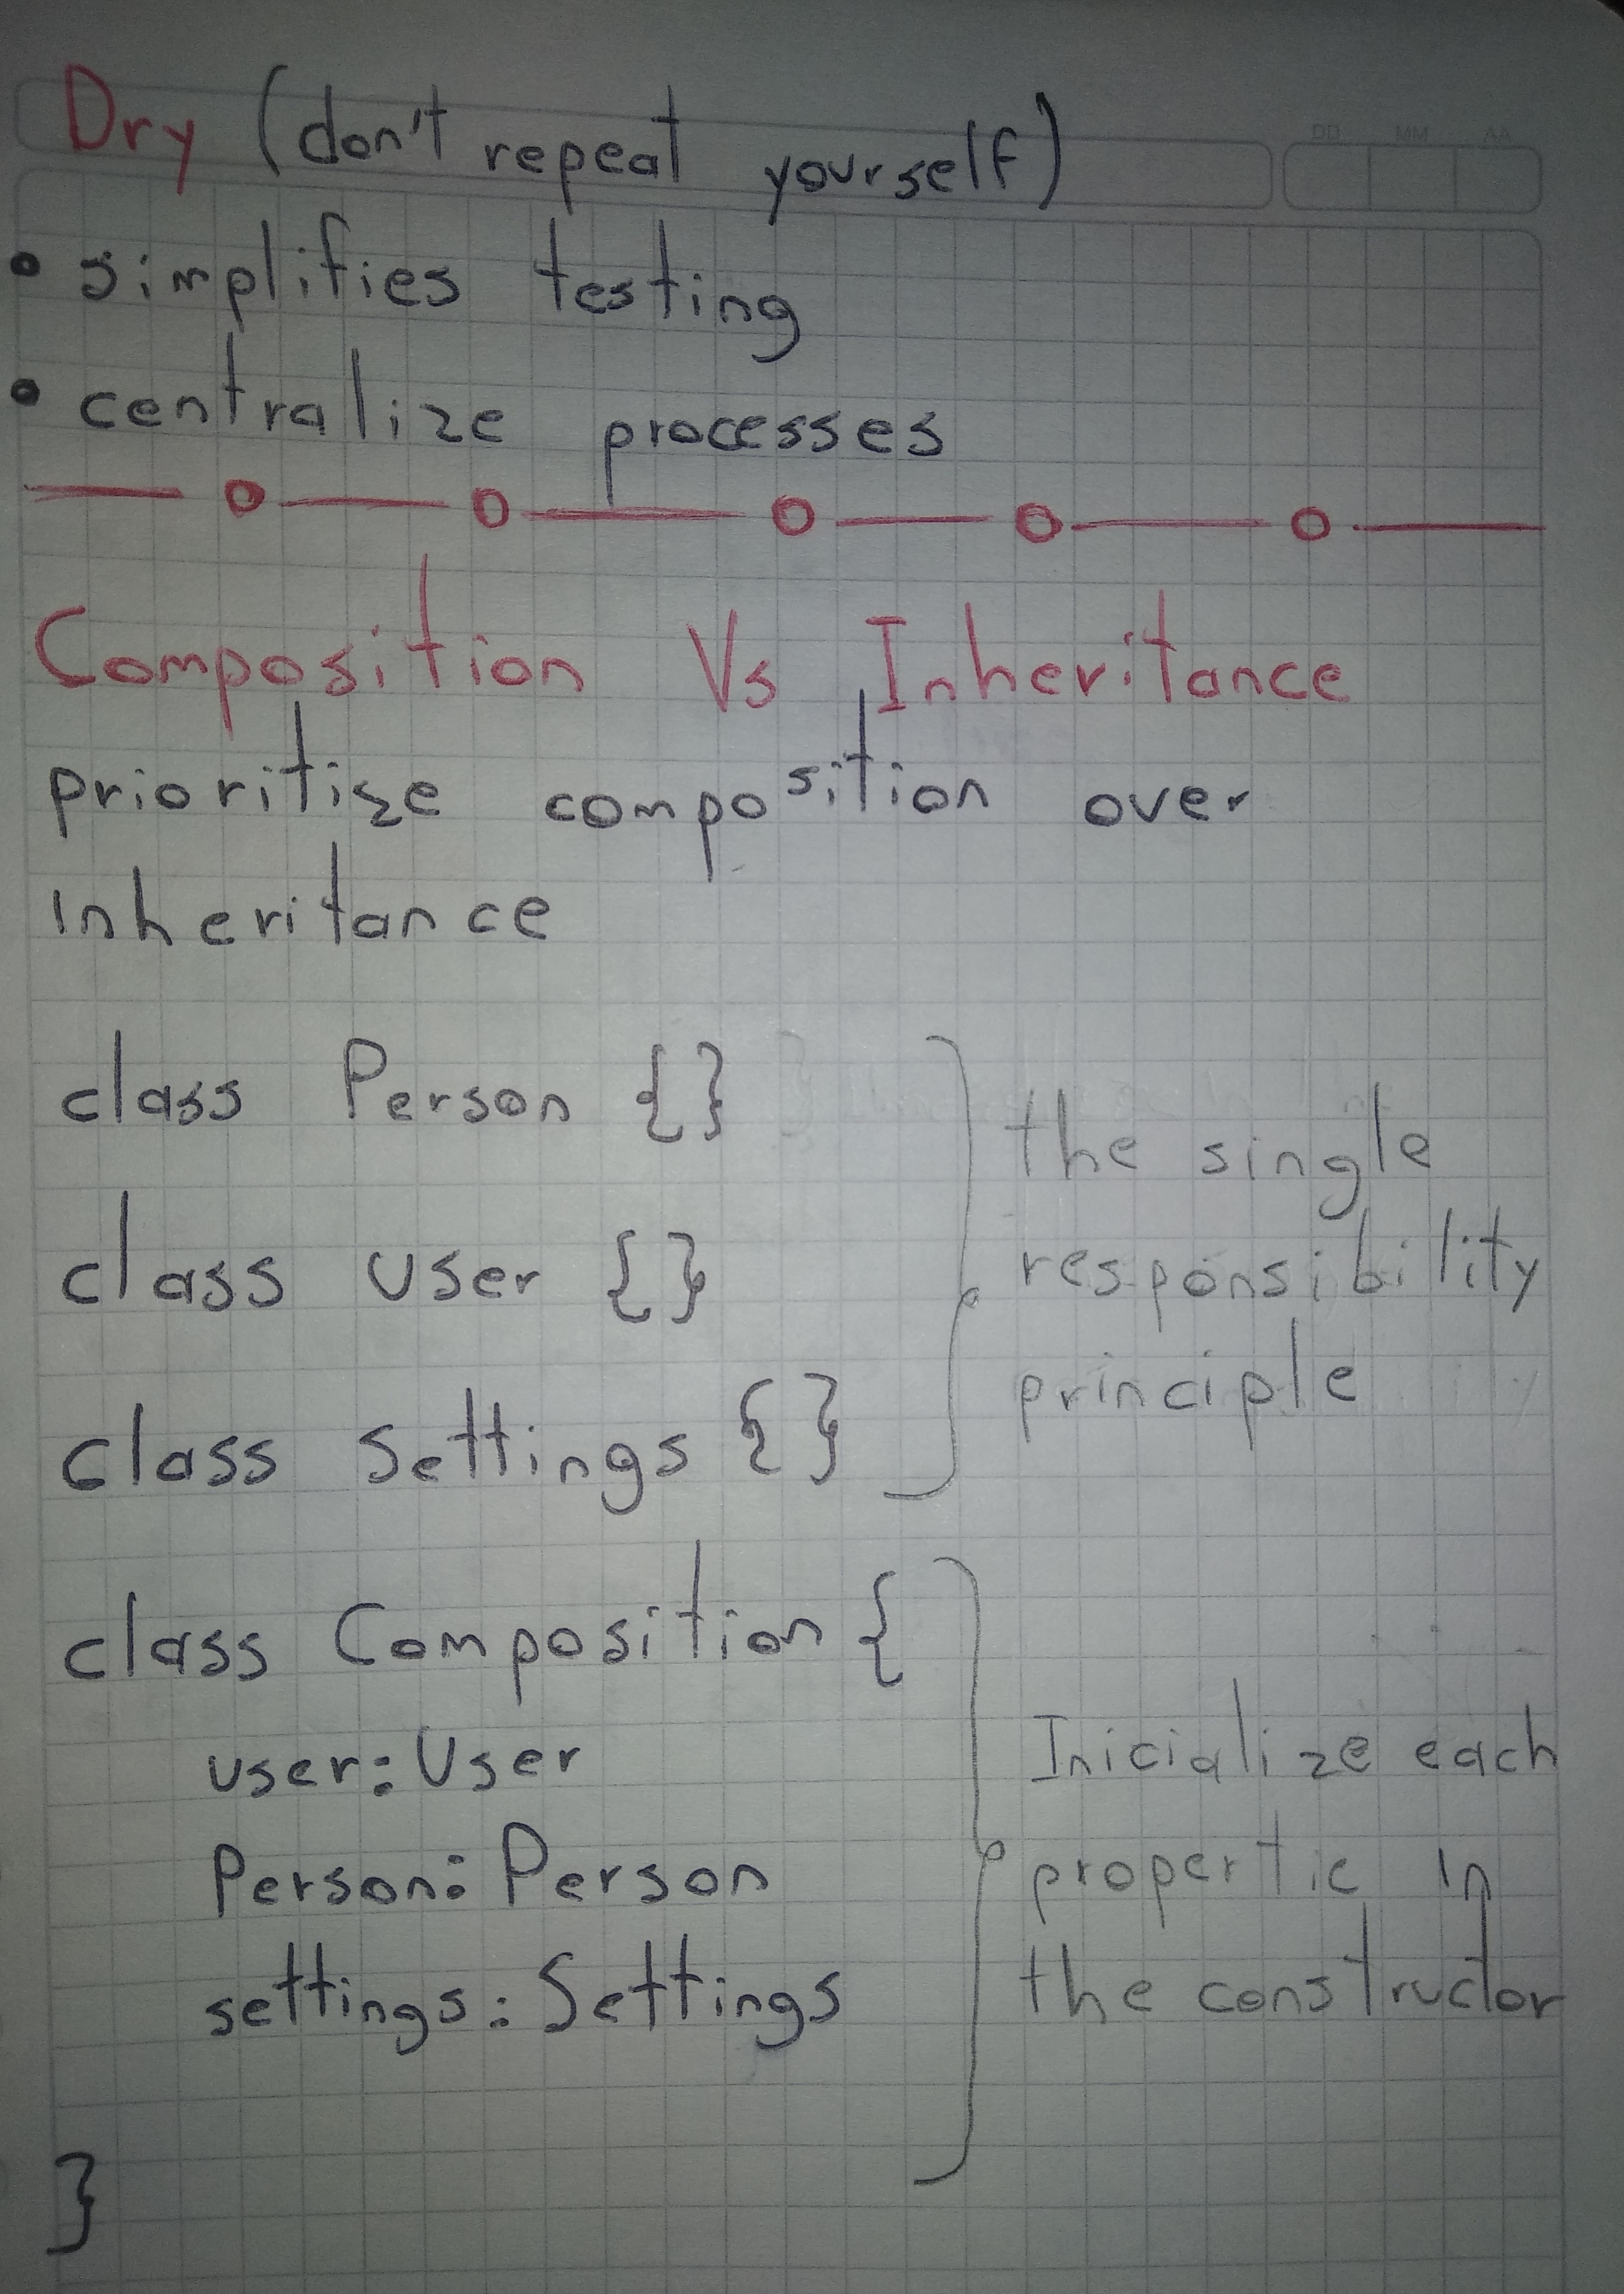 Dry (don't repeat yourself)
DD MM AA
• simplifies testing
• centralize processes
Composition Vs Inheritance
prioritize composition over
inheritance
class Person {}
class User {}
class Settings {}
the single
responsibility
principle
class Composition {
user: User
Person: Person
settings: Settings
}
Inicialize each
propertie in
the constructor